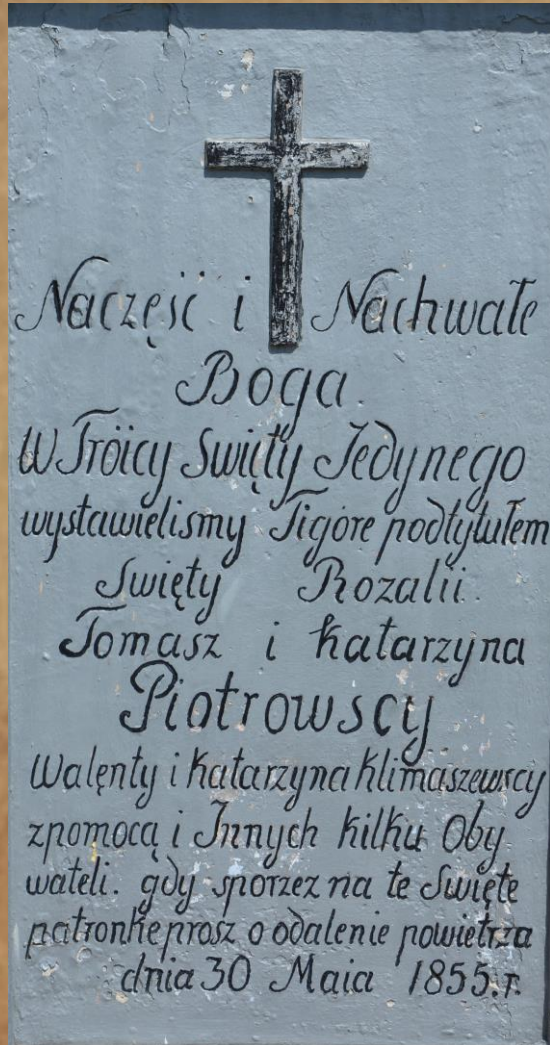 Naczęść i Nachwałe
Boga.
W Tröicy Swięty Jedynego
wystawielismy Tigóre podtytułem
Swięty Rozalii.
Tomasz i Katarzyna
Piotrowscy
Walęnty i Katarzyna Klimaszewscy
zpomocą i Innych kilku Oby
wateli. gdy sporzez na te Swięte
patronke prosz o odalenie powietrza
dnia 30 Maia 1855.r.